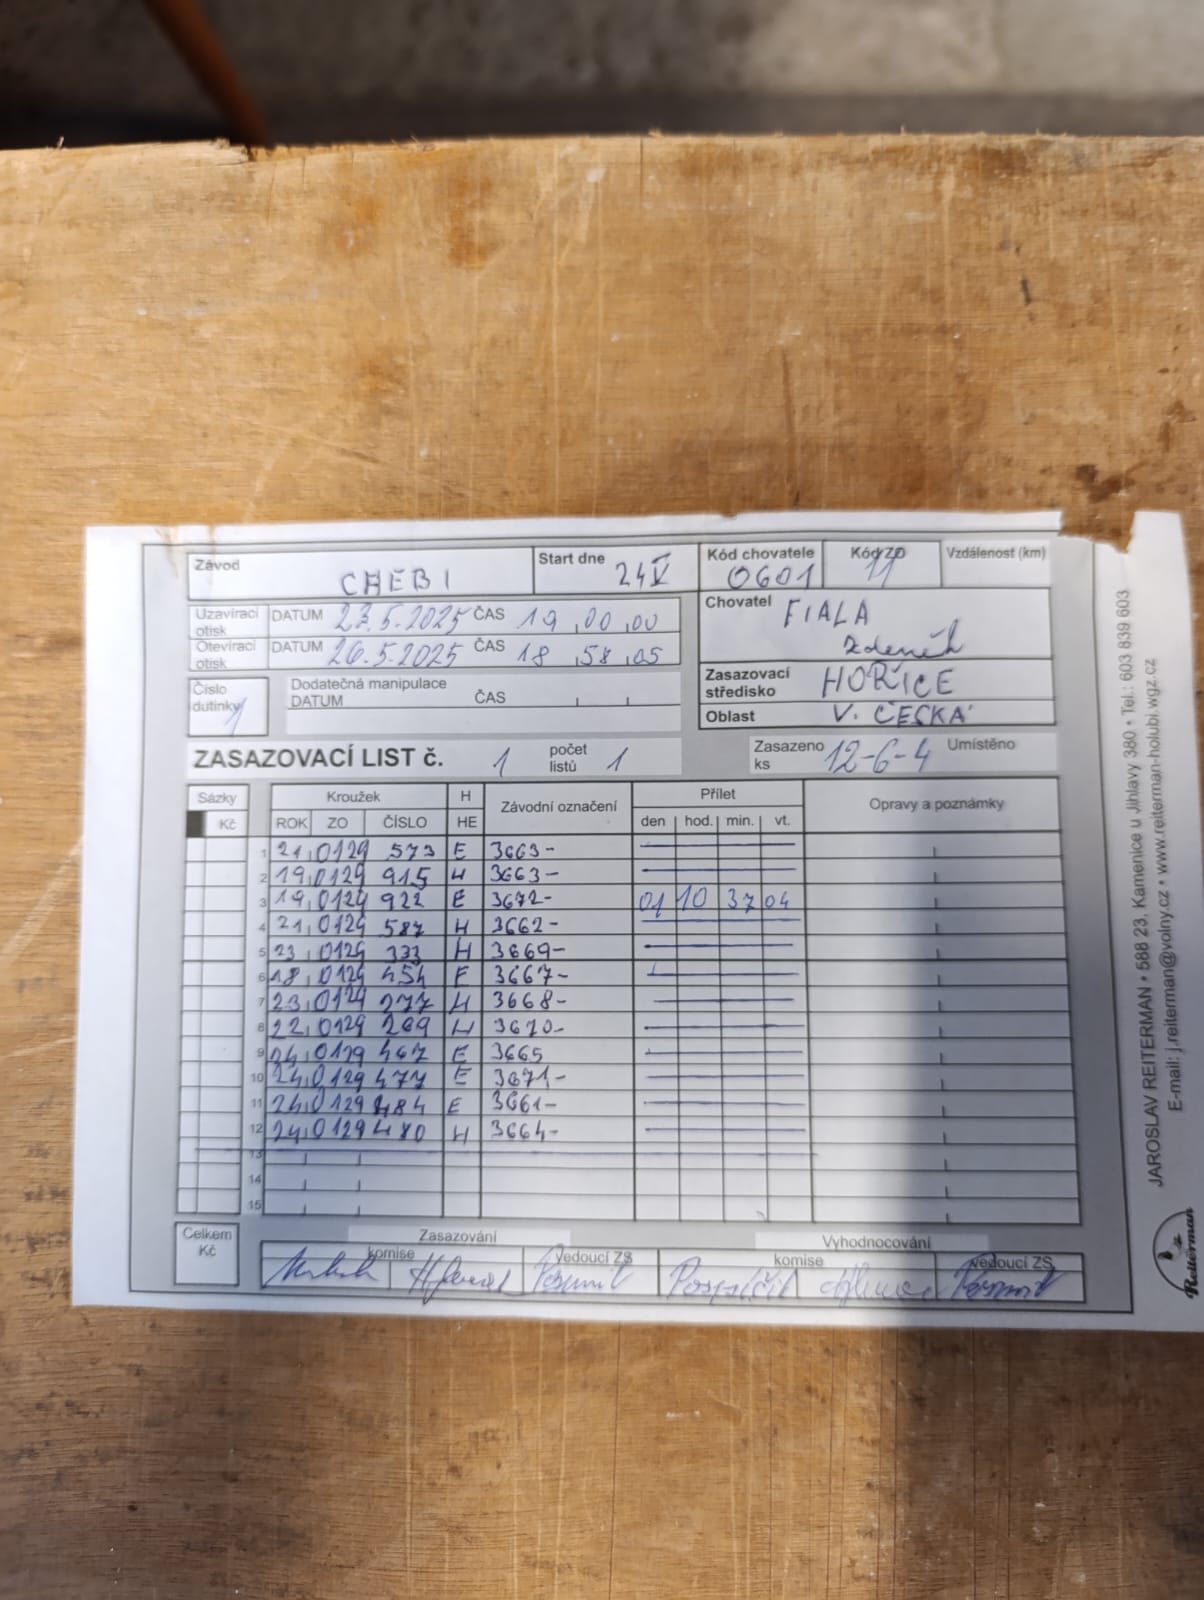 Závod CHEB I Start dne 24 V Kód chovatele 0601 Kód ZO 11 Vzdálenost (km)
Uzavírací otisk DATUM 23.5.2025 ČAS 19 00 00
Otevírací otisk DATUM 26.5.2025 ČAS 18 58 05
Chovatel FIALA
Zdeněk
Číslo dutinky 1 Dodatečná manipulace
DATUM ČAS
Zasazovací středisko HOŘICE
Oblast V. ČESKÁ
ZASAZOVACÍ LIST č. 1 počet listů 1 Zasazeno ks 12-6-4 Umístěno
Sázky Kroužek H Závodní označení Přílet Opravy a poznámky
Kč ROK ZO ČÍSLO HE den hod. min. vt.
1 21 0129 573 E 3663-
2 19 0129 915 H 3663-
3 19 0129 922 E 3672- 01 10 37 04
4 21 0129 587 H 3662-
5 23 0129 333 H 3669-
6 18 0129 454 E 3667-
7 23 0129 277 H 3668-
8 22 0129 269 H 3670-
9 24 0129 467 E 3665
10 24 0129 477 E 3671-
11 24 0129 484 E 3661-
12 24 0129 480 H 3664-
13
14
15
Celkem Kč Zasazování Vyhodnocování
komise vedoucí ZS komise vedoucí ZS
Pospíšil
JAROSLAV REITERMAN • 588 23, Kamenice u Jihlavy 380 • Tel.: 603 839 603
E-mail: j.reiterman@volny.cz • www.reiterman-holubi.wgz.cz
Reiterman